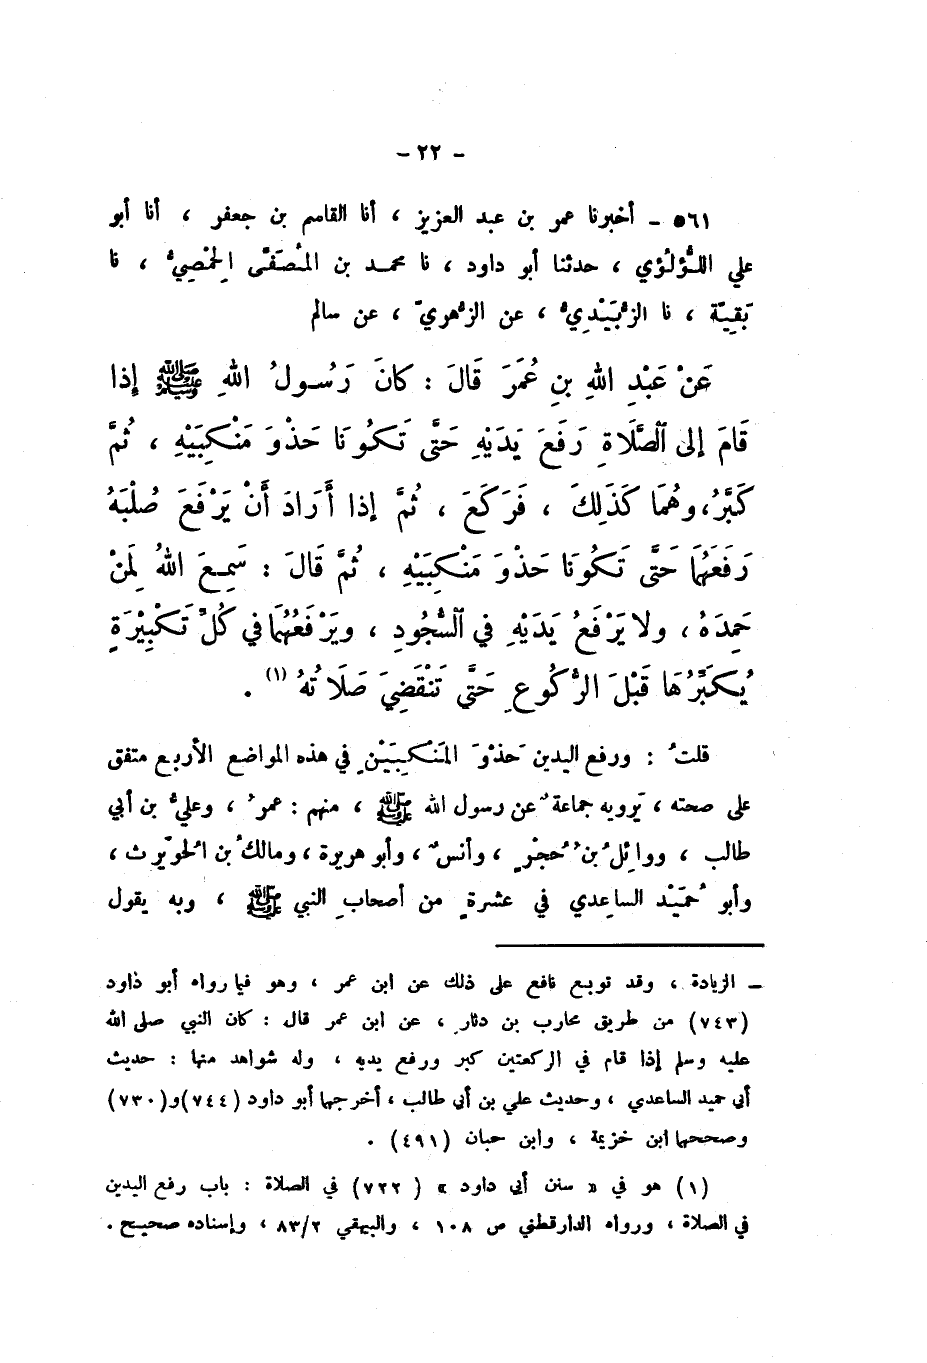 - ٢٢ -
٥٦١ - أخبرنا عمر بن عبد العزيز ، أنا القاسم بن جعفر ، أنا أبو
علي اللُّؤلُؤي ، حدثنا أبو داود ، نا محمد بن المُصَفَّى الحِمْصِيُّ ، نا
بَقِيَّة ، نا الزُّبَيْدِيُّ ، عن الزُّهْوِيِّ ، عن سالم
عَنْ عَبْدِ اللهِ بنِ عُمَرَ قَالَ : كَانَ رَسُولُ اللهِ ﷺ إِذا
قَامَ إِلى الصَّلَاةِ رَفَعَ يَدَيْهِ حَتَّى تَكُونَا حَذْوَ مَنْكِبَيْهِ ، ثُمَّ
كَبَّرُ، وهُمَا كَذَلِكَ ، فَرَكَعَ ، ثُمَّ إِذا أَرَادَ أَنْ يَرْفَعَ صُلْبَهُ
رَفَعَهُمَا حَتَّى تَكُونَا حَذْوَ مَنْكِبَيْهِ ، ثُمَّ قَالَ : سَمِعَ اللهُ لِمَنْ
حَمِدَهُ ، ولا يَرْفَعُ يَدَيْهِ في السُّجُودِ ، ويَرْفَعُهُمَا في كُلِّ تَكْبِيْرَةٍ
يُكَبِّرُهَا قَبْلَ الرُّكُوعِ حَتَّى تَنْقَضِيَ صَلَاتُهُ (١) .
قلتُ : ورفع اليدين حَذْوَ المَنْكِبَيْنِ في هذه المواضع الأربع متفق
على صحته ، يَرويه جماعةٌ عن رسول الله ﷺ ، منهم : عمرُ ، وعليُّ بن أبي
طالب ، ووائِلُ بنُ حُجْرٍ ، وأنسٌ ، وأبو هريرة ، ومالكُ بن الحُوَيْرِث ،
وأبو حُمَيْد الساعِدي في عشرةٍ من أصحابِ النبي ﷺ ، وبه يقول
- الزيادة ، وقد توبع نافع على ذلك عن ابن عمر ، وهو فيا رواه أبو داود
(٧٤٣) من طريق محارب بن دثار ، عن ابن عمر قال : كان النبي صلى الله
عليه وسلم إذا قام في الركعتين كبر ورفع يديه ، وله شواهد منها : حديث
أبي حميد الساعدي ، وحديث علي بن أبي طالب ، أخرجها أبو داود (٧٤٤) و(٧٣٠)
وصححها ابن خزيمة ، وابن حبان (٤٩١) .
(١) هو في « سنن أبي داود » (٧٢٢) في الصلاة : باب رفع اليدين
في الصلاة ، ورواه الدارقطني ص ١٠٨ ، والبيهقي ٨٣/٢ ، وإسناده صحيح .